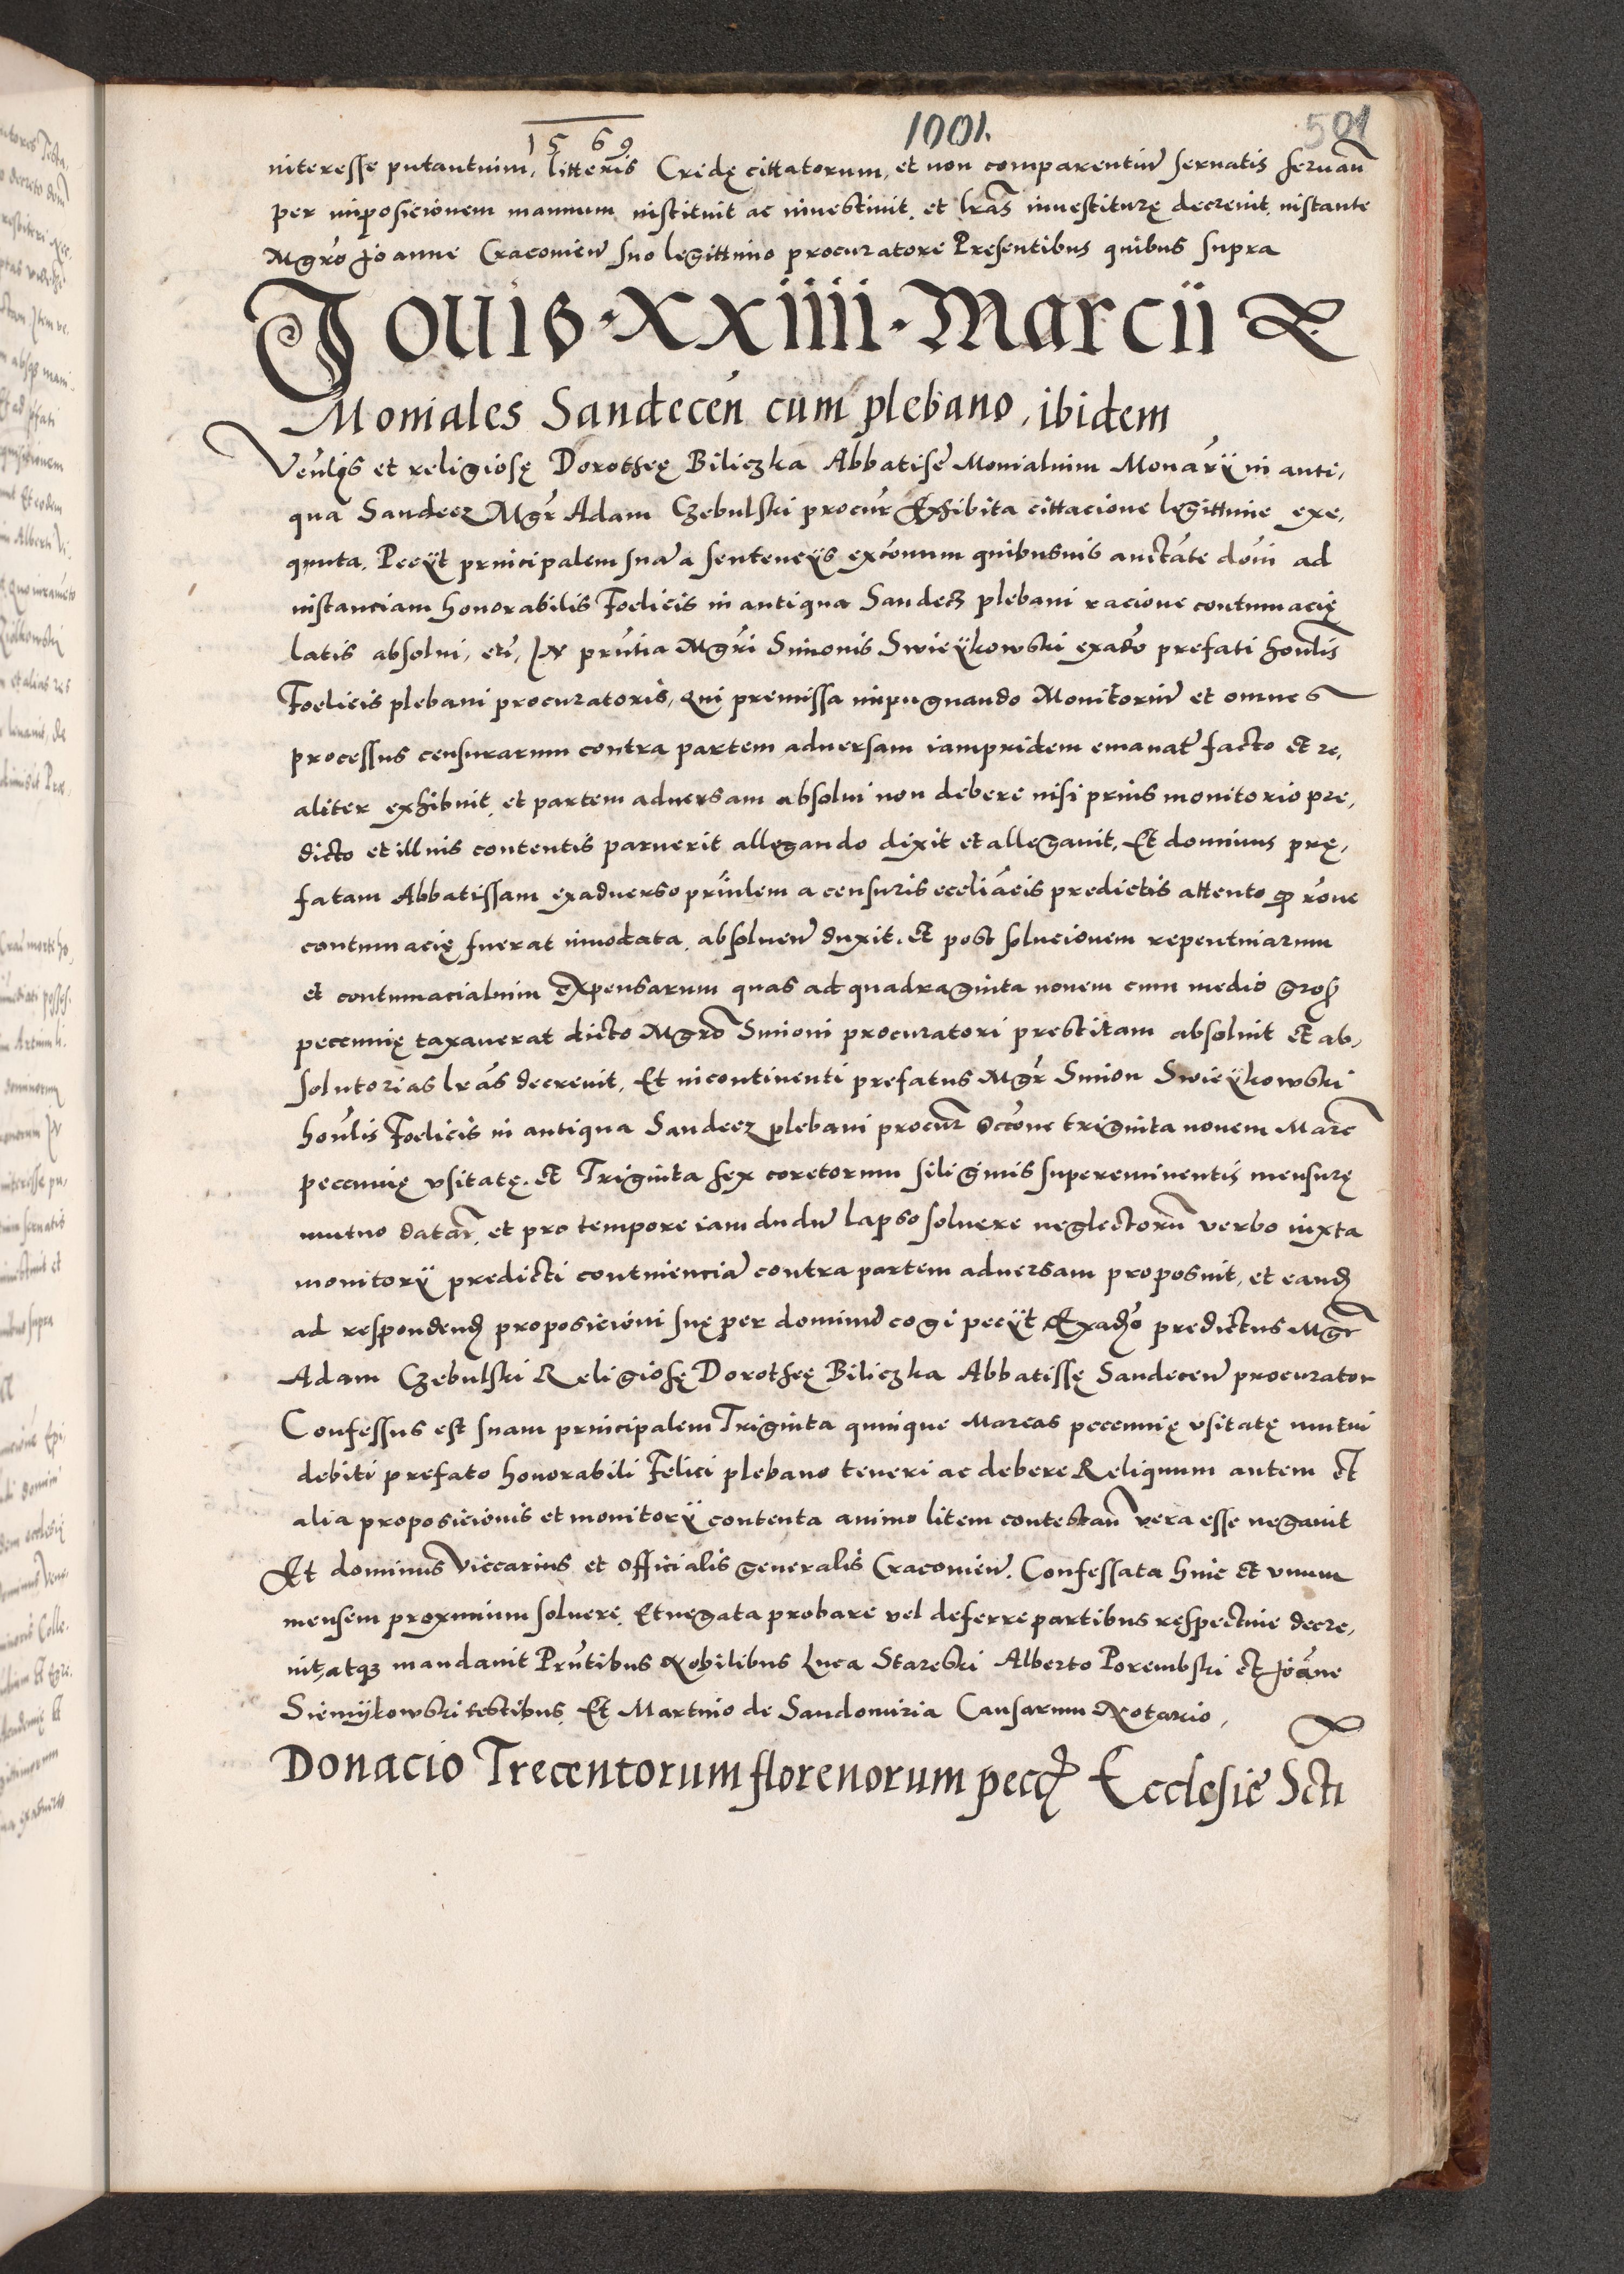 1569 1001. 501
interesse putantium, litteris Cridę cittatorum, et non comparentiũ seruatis seruañ
per imposicionem manuum instituit ac inuestiuit, et lrãs inuestiturę decreuit, instante
Mgrõ Joanne Cracouieñ suo legittimo procuratore Presentibus quibus supra
Jouis · XXIIII · Marcii &
Moniales Sandeceñ cum plebano, ibidem
Veñlis et religiosę Dorotheę Biliczka Abbatisẽ Monialium Monãrÿ in anti,
qua Sandecz Mgr̃ Adam Czebulski procur̃ Exhibita cittacione legittime exe,
quuta. Peciÿt principalem suã a sentencÿs exc̃onum quibusuis auctãte dom̃i ad
instanciam honorabilis Foelicis in antiqua Sandecz plebani racione contumacię
latis absolui, et̃i, In prñtia Mgr̃i Simonis Swieÿkowski exadõ prefati hoñlis
Foelicis plebani procuratoris, qui premissa impugnando Monitoriũ et omnes
processus censurarum contra partem aduersam iampridem emanat̃ facto et re,
aliter exhibuit, et partem aduersam absolui non debere nisi prius monitorio pre,
dicto et illius contentis paruerit allegando dixit et allegauit, Et dominus prę,
fatam Abbatissam exaduerso prĩnlem a censuris eccliãcis predictis attento qp rõne
contumacię fuerat innodata, absoluen̄ duxit. Et post solucionem repentniarum
et contumacialium Expensarum quas ad quadraginta nouem cum medio groß
pecunnię taxauerat dicto Mgrõ Simoni procuratori prestitam absoluit et ab,
solutorias lrãs decreuit, Et incontinenti prefatus Mgr̃ Simon Swieÿkowski
hoñlis Foelicis in antiqua Sandecz plebani procur̃ occõne triginta nouem Marc̃
pecunnię vsitatę. et Triginta sex coretorum siliginis supereminentis mensurę
mutuo datar̃, et pro tempore iam dudũ lapso soluere neglectorũ verbo iuxta
monitorÿ predicti continenciã contra partem aduersam proposuit, et eand̃
ad respondend̃ proposicioni suę per dominũ cogi peciÿt, Exad̃o predictus Mgr̃
Adam Czebulski Religiosę Dorotheę Biliczka Abbatissę Sandeceñ procurator
Confessus est suam principalem Triginta quinque Marcas pecunnię vsitatę mutui
debiti prefato honorabili Felici plebano teneri ac debere Reliquum autem et
alia proposicionis et monitorÿ contenta animo litem contestañ vera esse negauit
Et dominus Viccarius et Officialis generalis Cracouieñ. Confessata hinc et vnum
mensem proximum soluere, Et negata probare vel deferre partibus respectiue decre,
uit, atqз mandauit Prñtibus Nobilibus Luca Starcski Alberto Porembski et Joãne
Siemÿkowski testibus, Et Martino de Sandomiria Causarum Notario,
Donacio Trecentorum florenorum pecc̃ Ecclesie Scti